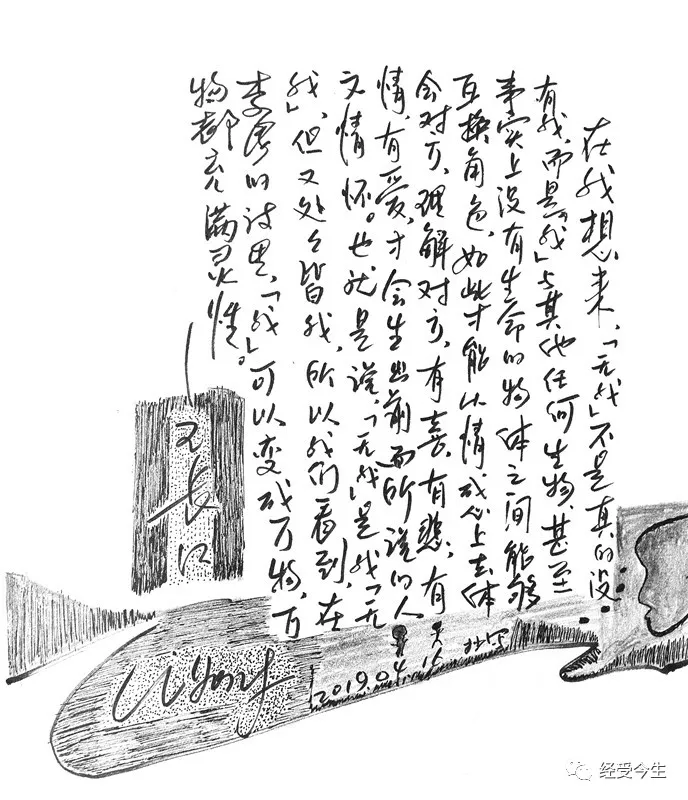 在我想来，「无我」不是真的没
有我，而是「我」与其他任何生物、甚至
事实上没有生命的物体之间能够
互换角色，如此才能从情感上去体
会对方，理解对方，有喜，有悲，有
情，有爱，才会生出前面所说的人
文情怀。也就是说，「无我」是我「无
我」，但又处处皆我，所以我们看到，在
的诗里，「我」可以变成万物，万
物都充满灵性。
2019.04.16
经受今生